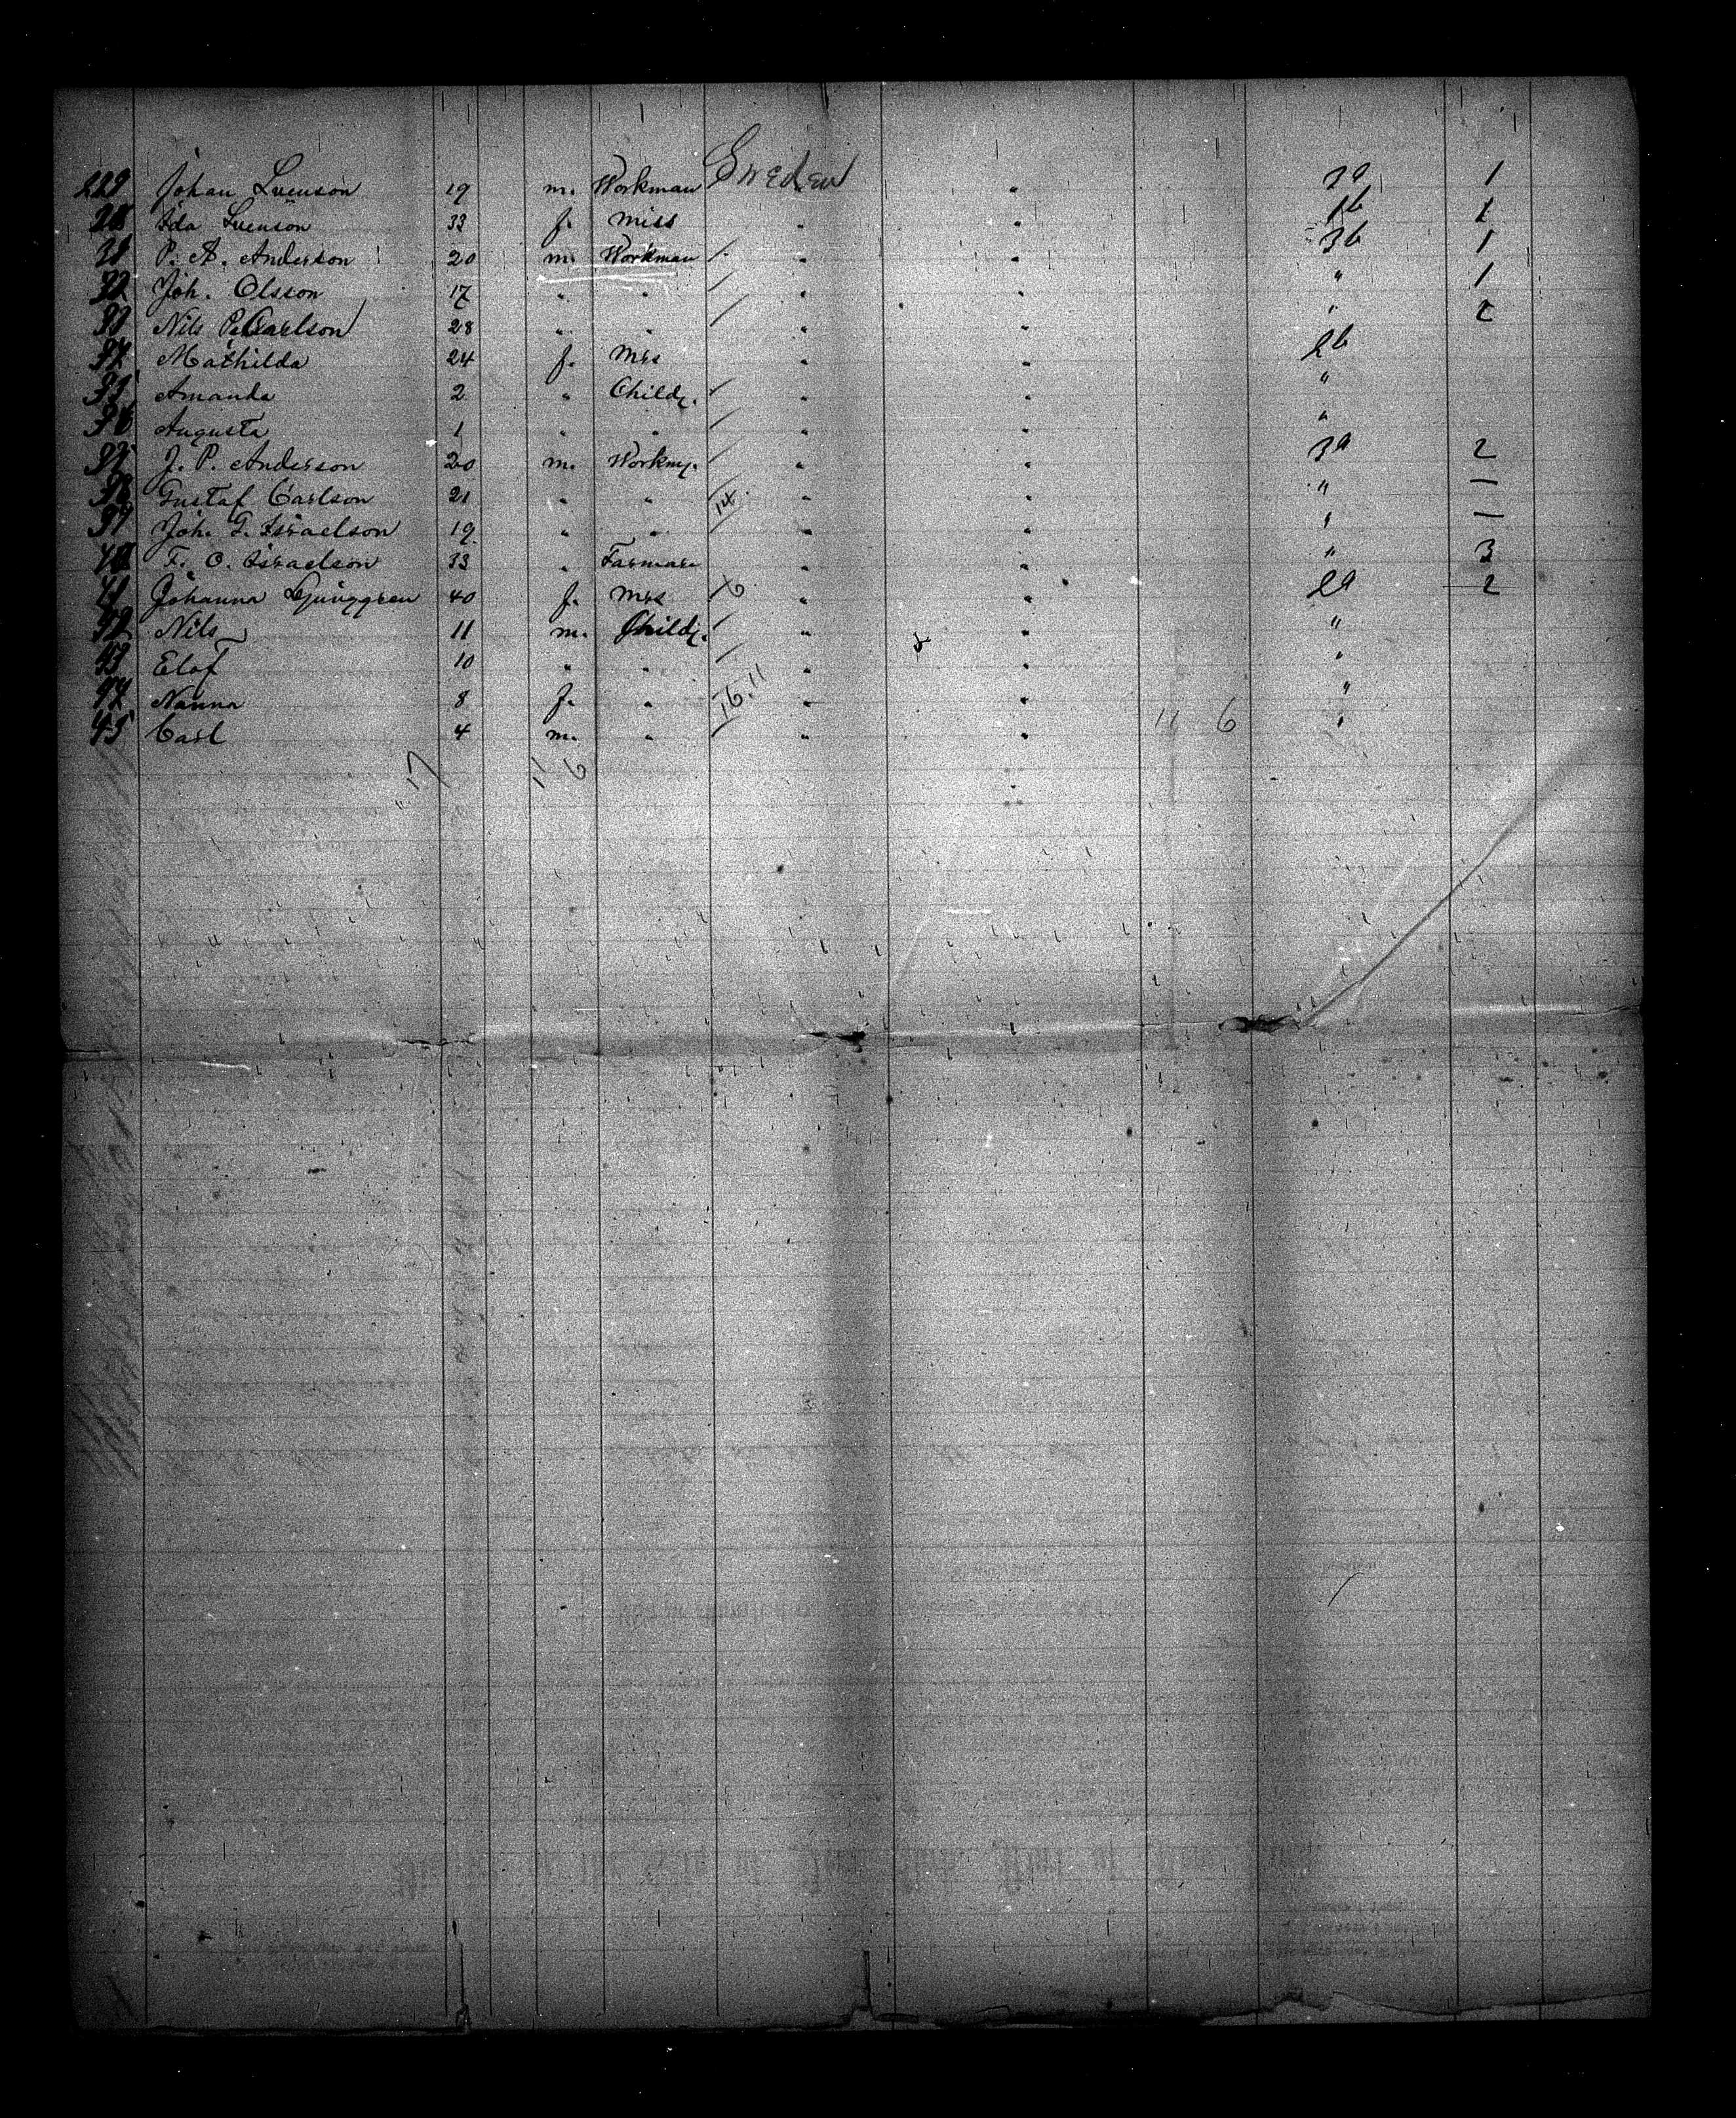 229 Johan Svenson 19 m. Workman Sweden " 3a 1
Ida Svenson 33 f. Miss " " 1b 1
31 P. A. Anderson 20 m. Workman " " 3b 1
32 Joh. Olsson 17 " " " " " 1
33 Nils P. Carlson 28 " " " " " 2
34 Mathilda 24 f. Mrs " " 2b
35 Amanda 2 " Childr. " " "
36 Augusta 1 " " " " "
37 J. P. Anderson 20 m. Workm. " " 3a 2
38 Gustaf Carlson 21 " " 14 " " " —
39 Joh. G. Israelson 19 " " " " " —
40 F. O. Israelson 33 " Farmare " " " 3
41 Johanna Ljunggren 40 f. Mrs " " 2a 2
42 Nils 11 m. Childr. " " "
43 Elof 10 " " " " "
44 Nanna 8 f. " 16.11 " " "
45 Carl 4 m. " " " 11 6 "
17 11 6